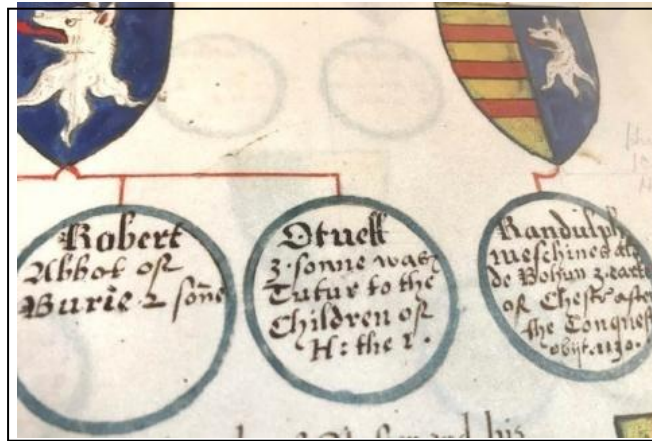 Robert
Abbot of
Burie · 2 sone
Otuell
3 · sonne was
Tutur to the
Children of
H: the 1 ·
Randulph
meschines als
de Bohun 3 earle
of Chestr after
the Conquest
obijt · 1130 ·
and his